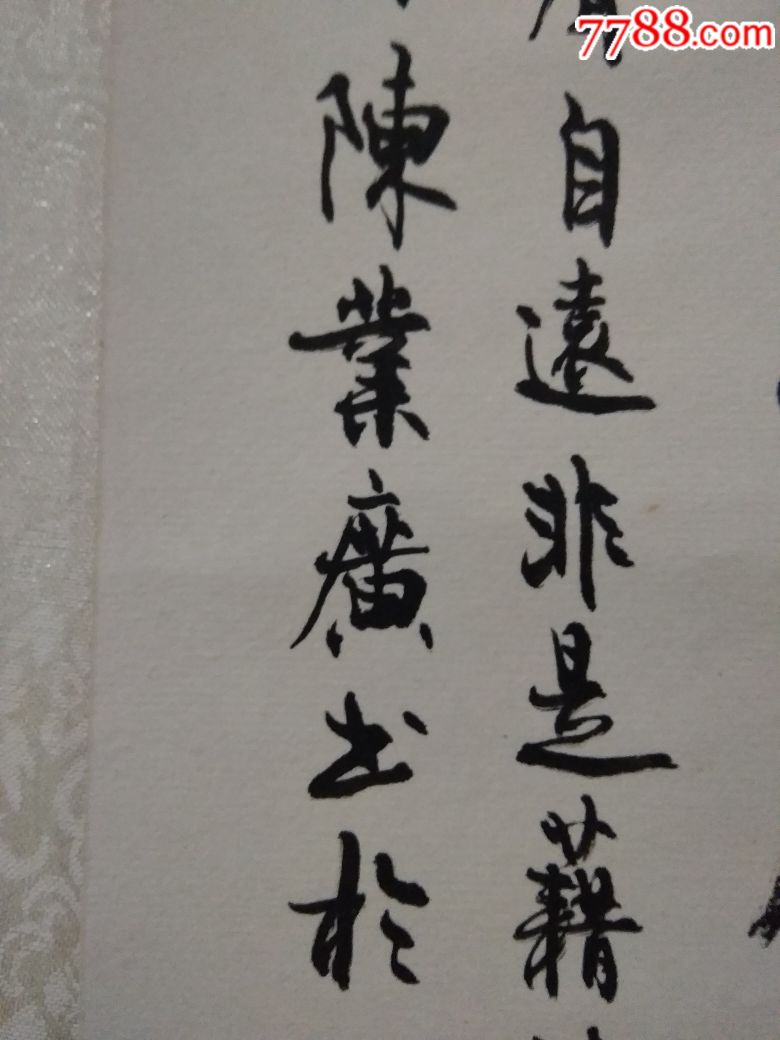 7788.com
自遠非是藉
陳業廣书於